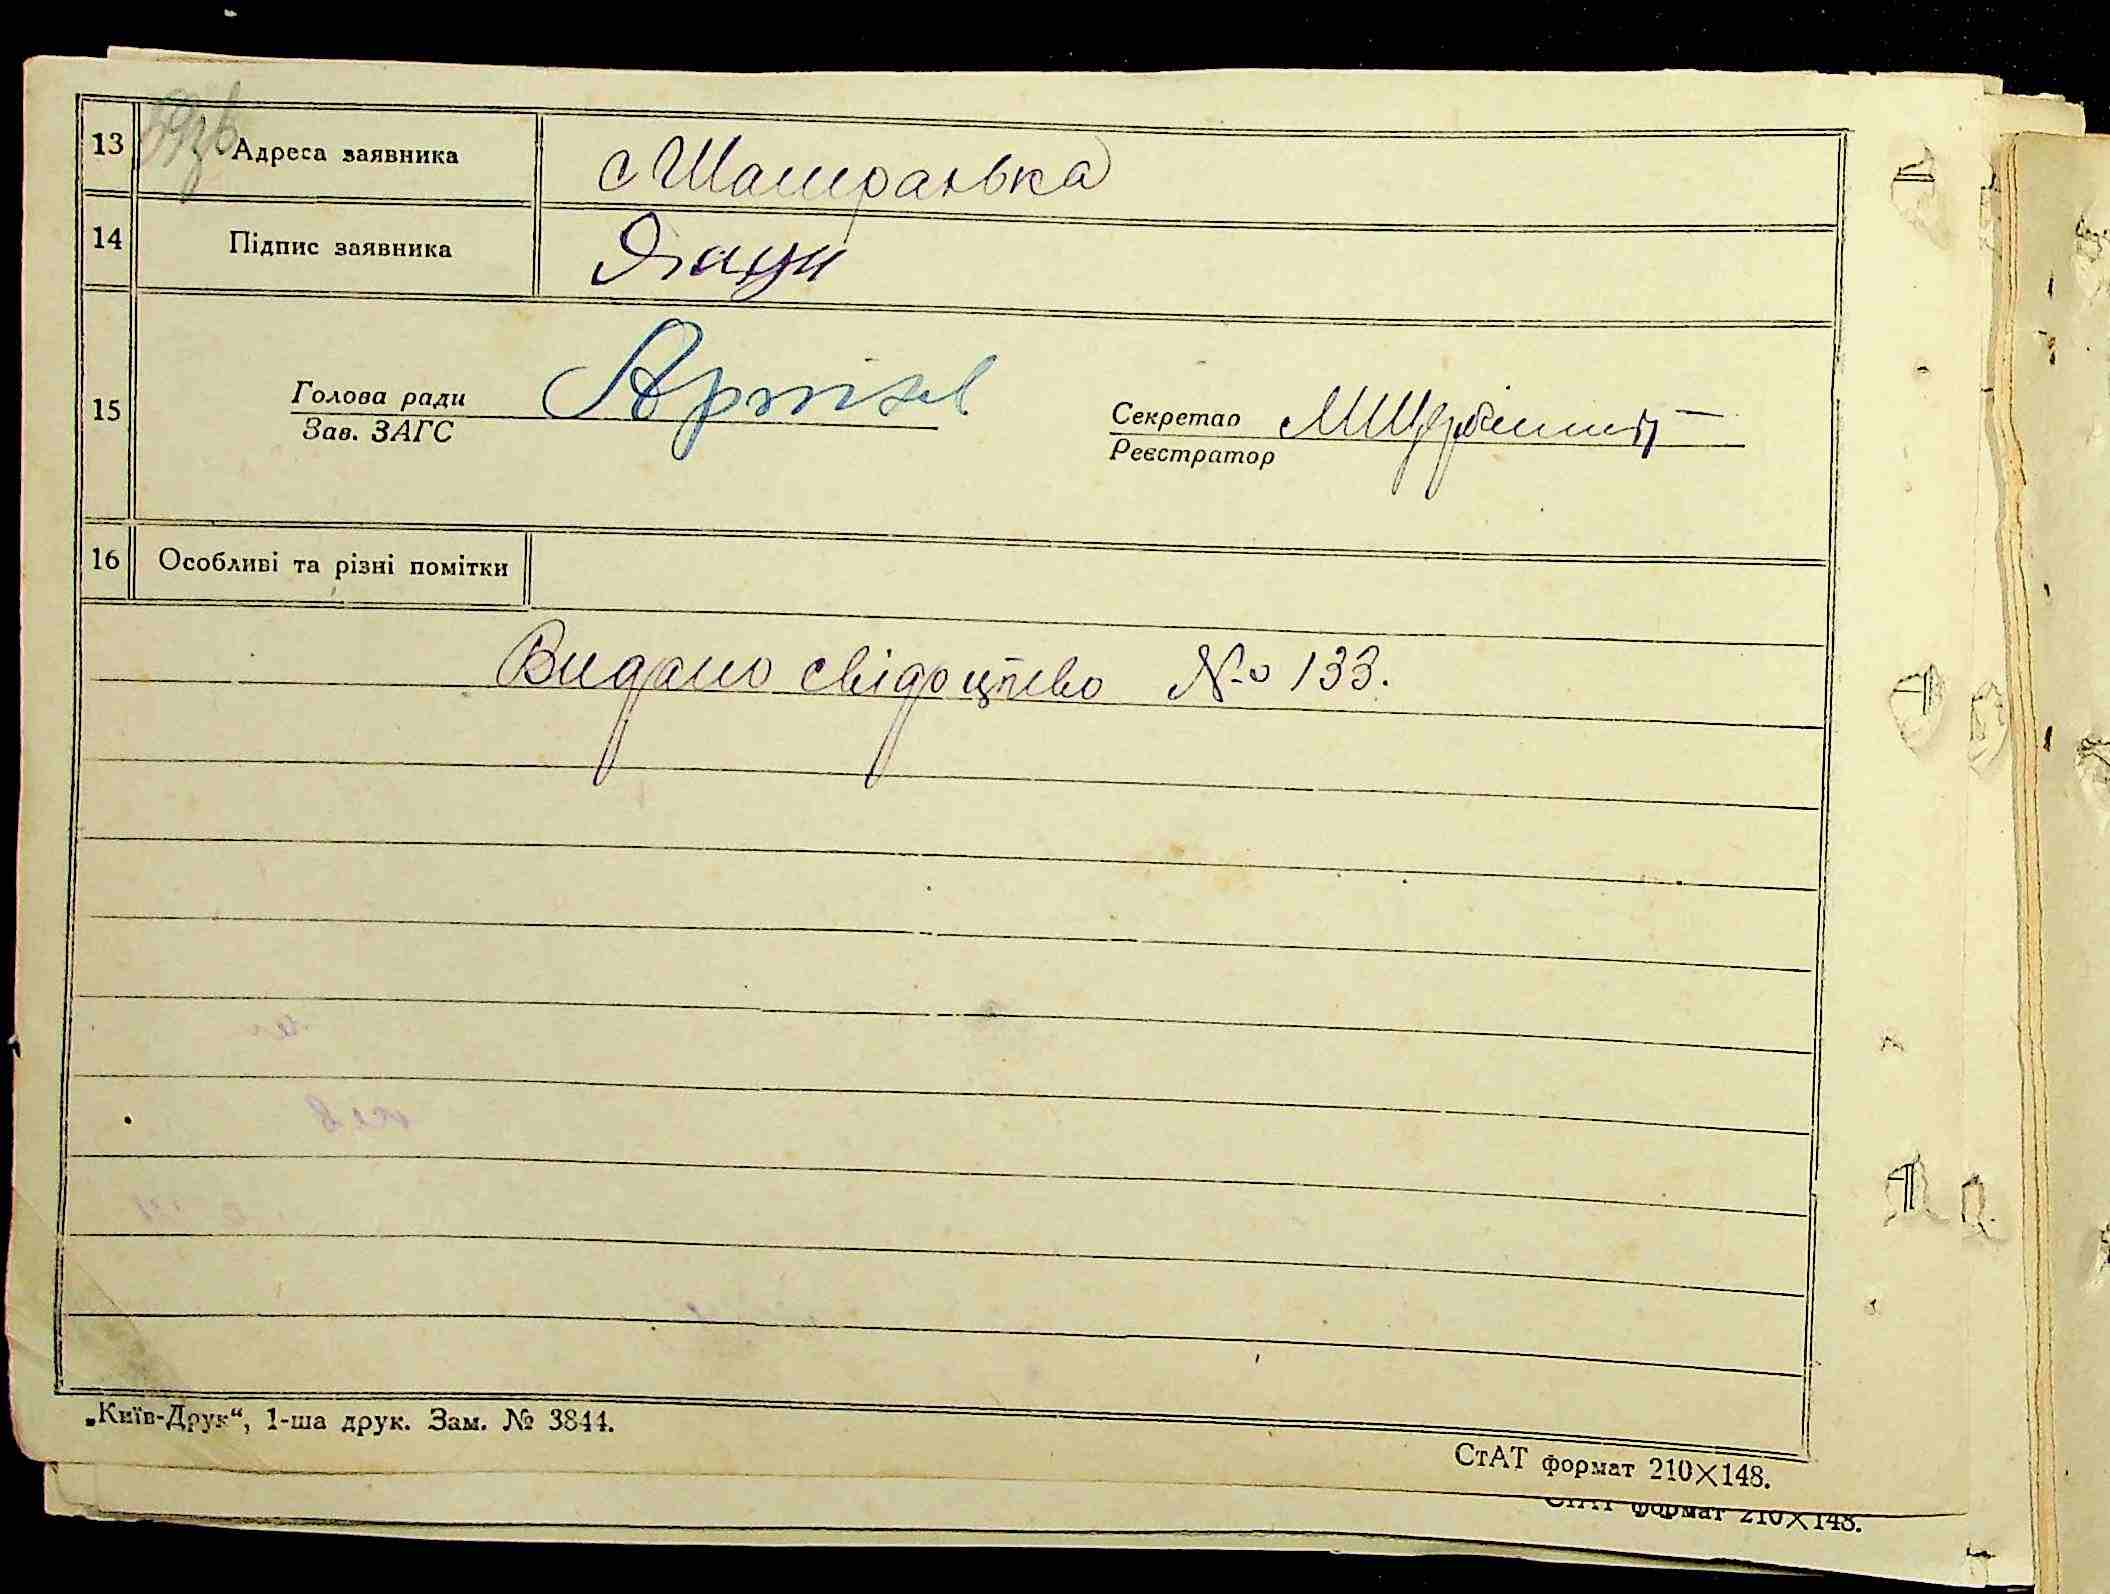 13 Адреса заявника с Шамраївка
14 Підпис заявника
15 Голова ради Секретар
Зав. ЗАГС Реєстратор
16 Особливі та різні помітки
Видано свідоцтво №-о 133.
„Київ-Друк“, 1-ша друк. Зам. № 3844.
СтАТ формат 210×148.
СтАТ формат 210×148.